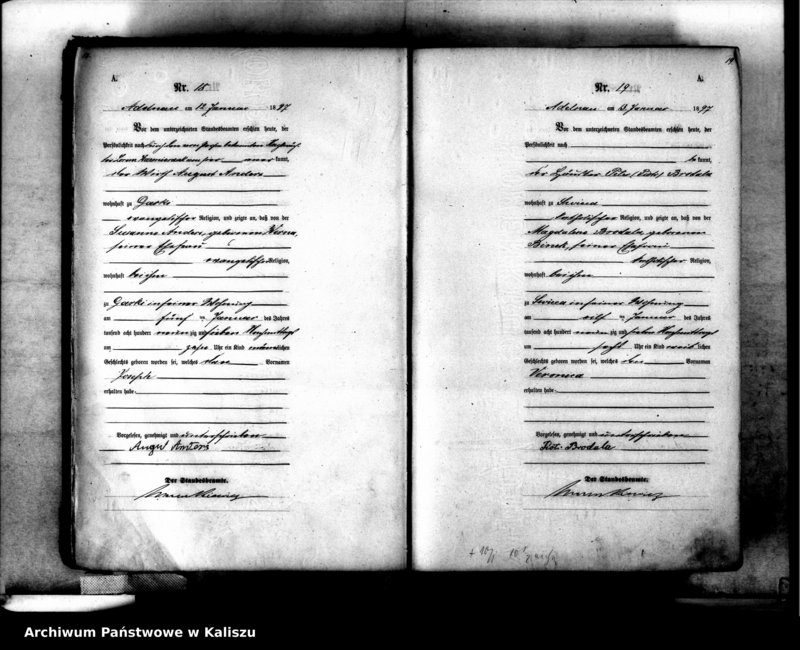 A.
Nr. 18
Adelnau am 12 Januar 1897
Vor dem unterzeichneten Standesbeamten erschien heute, der
Persönlichkeit nach durch den
kannt,
der Wirth August Anders
wohnhaft zu Garki
evangelischer Religion, und zeigte an, daß von der
Susanna Anders, geborenen
seiner Ehefrau
evangelischer Religion,
wohnhaft bei ihm
zu Garki in seiner Wohnung
am fünf ten Januar des Jahres
tausend acht hundert neunzig und sieben Nachmittags
um zehn Uhr ein Kind männlichen
Geschlechts geboren worden sei, welches den Vornamen
Joseph
erhalten habe.
Vorgelesen, genehmigt und unterschrieben
Der Standesbeamte.
19
Nr. 19
A.
Adelnau am 13 Januar 1897
Vor dem unterzeichneten Standesbeamten erschien heute, der
Persönlichkeit nach
be kannt,
der Brodala
wohnhaft zu
katholischer Religion, und zeigte an, daß von der
Magdalena Brodala geborenen
seiner Ehefrau
katholischer Religion,
wohnhaft bei ihm
zu in seiner Wohnung
am elf ten Januar des Jahres
tausend acht hundert neunzig und sieben Nachmittags
um Uhr ein Kind weiblichen
Geschlechts geboren worden sei, welches den Vornamen
Veronica
erhalten habe.
Vorgelesen, genehmigt und unterschrieben
Brodala
Der Standesbeamte.
Archiwum Państwowe w Kaliszu